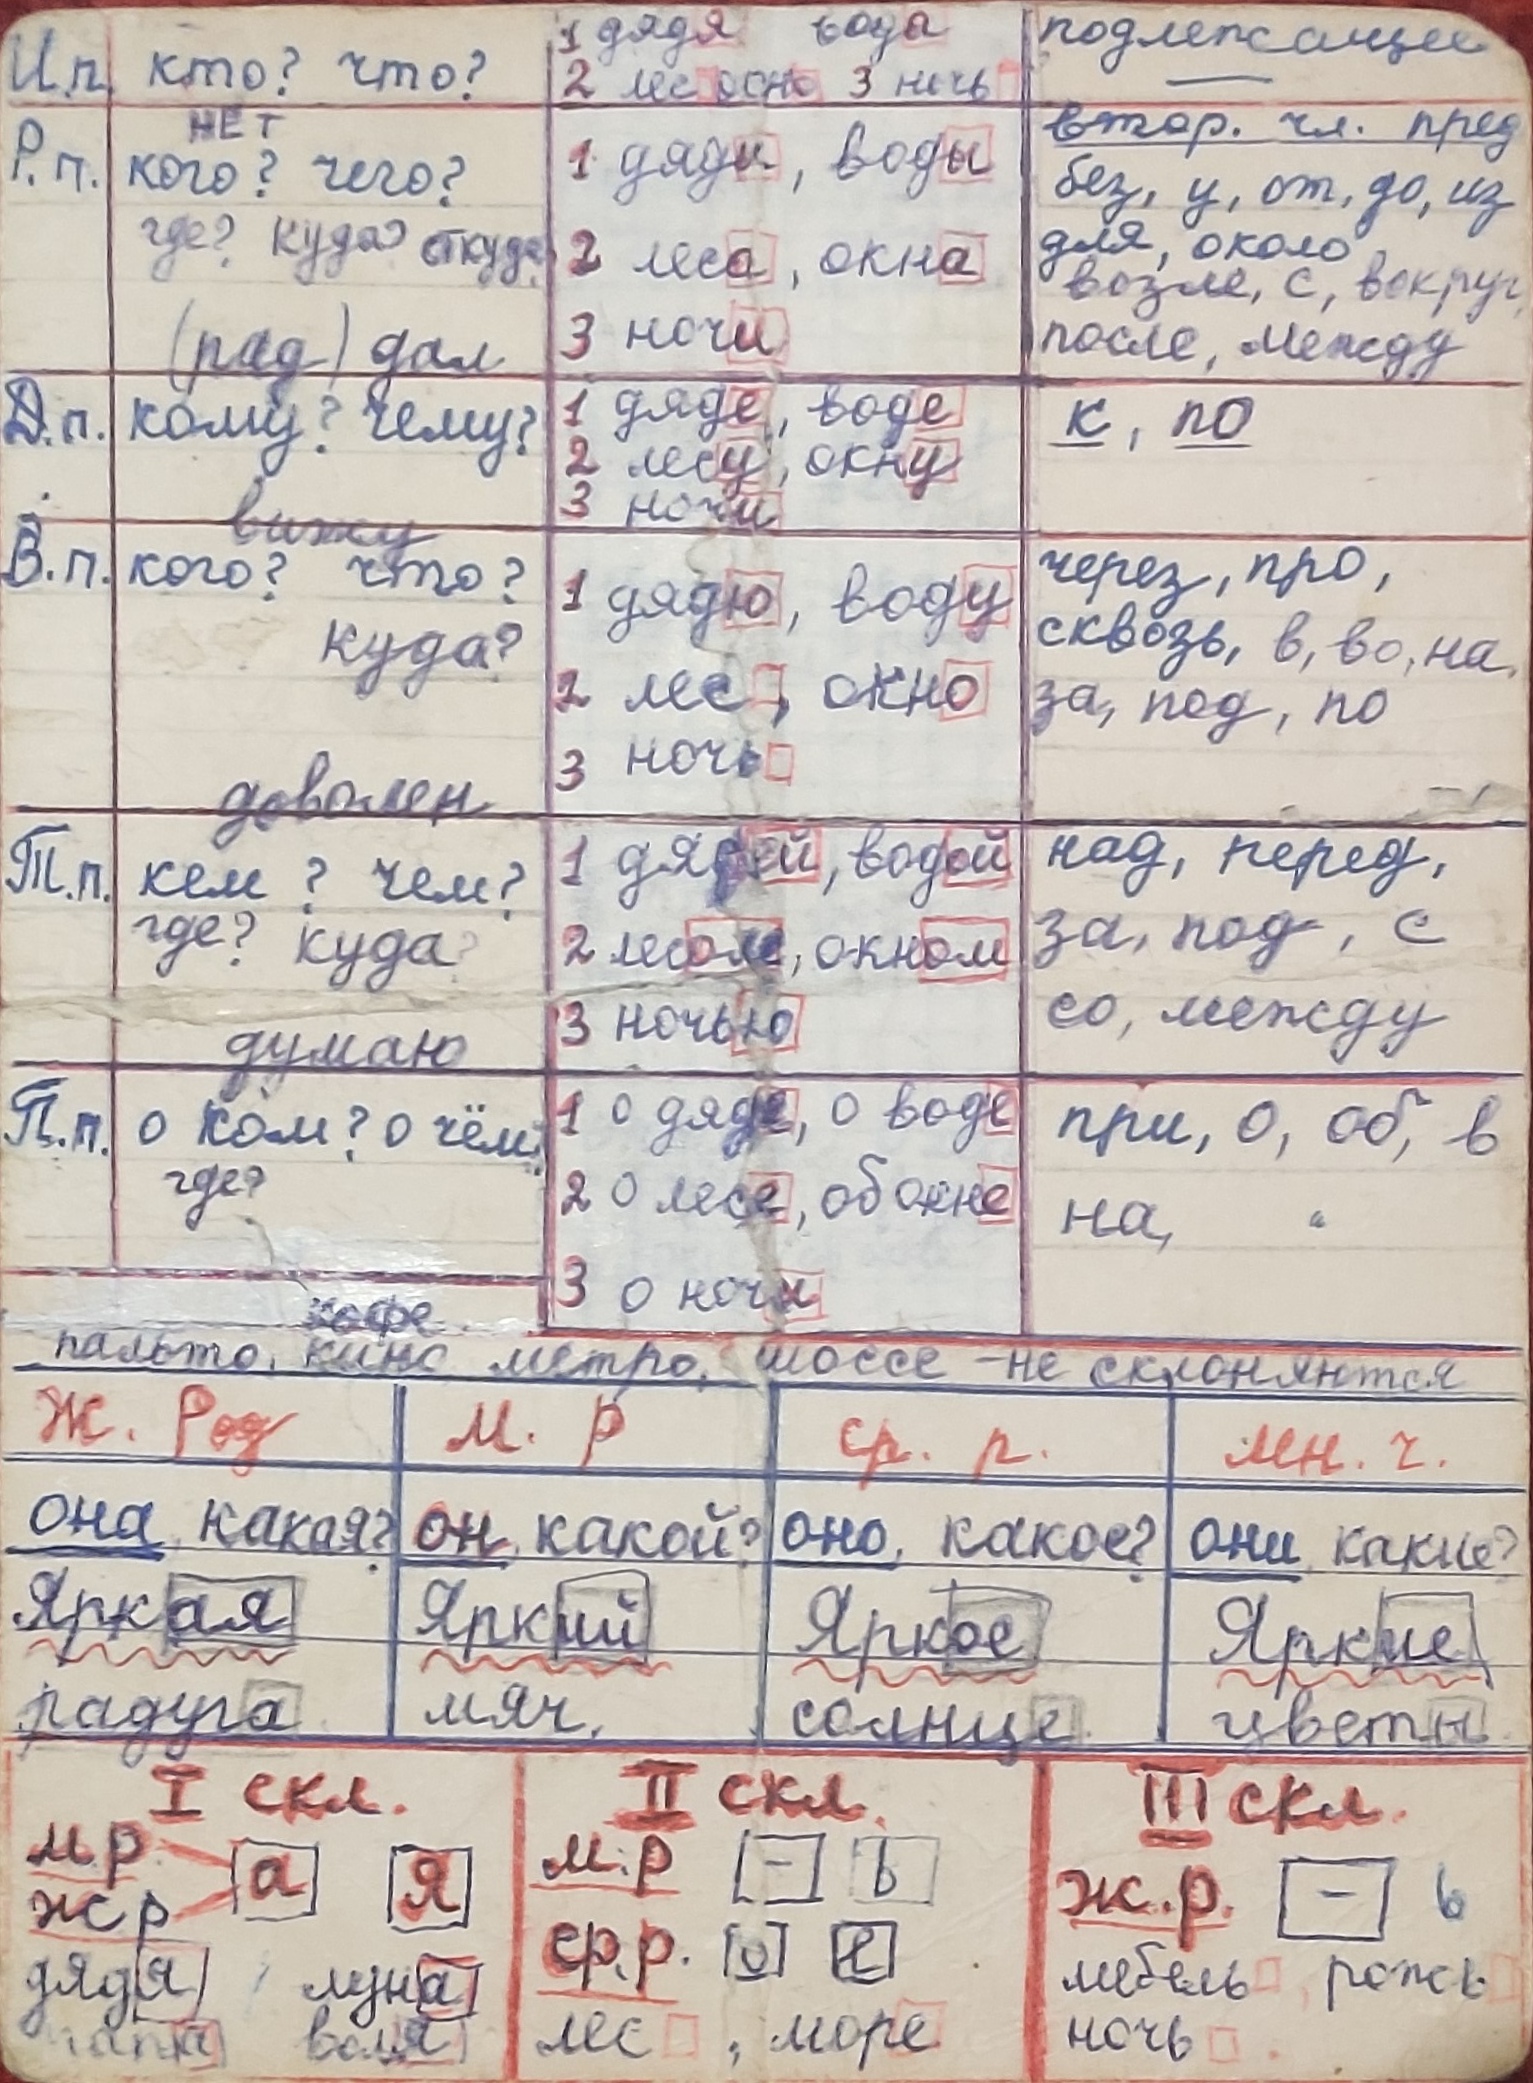 И.п. кто? что? 1 дядя вода подлежащее
2 лес окно 3 ночь
НЕТ
Р.п. кого? чего? 1 дяди, воды втор. чл. пред
где? куда? откуда? без, у, от, до, из
2 леса, окна для, около,
возле, с, вокруг,
(рад) дал 3 ночи после, между
Д.п. кому? чему? 1 дяде, воде к, по
2 лесу, окну
3 ночи
вижу
В.п. кого? что? 1 дядю, воду через, про,
куда? сквозь, в, во, на,
2 лес, окно за, под, по
3 ночь
доволен
Т.п. кем? чем? 1 дядей, водой над, перед,
где? куда? 2 лесом, окном за, под, с
3 ночью со, между
думаю
П.п. о ком? о чём? 1 о дяде, о воде при, о, об, в
где? 2 о лесе, об окне на,
3 о ночи
кофе
пальто, кино метро, шоссе - не склоняются
Ж. Род М. Р ср. р. мн. ч.
она какая? он какой? оно, какое? они какие?
Яркая Яркий Яркое Яркие
радуга мяч, солнце цветы
I скл. II скл. III скл.
м.р. а я м.р - ь ж.р. - ь
ж.р ср.р. о е
дядя луна лес, море мебель, рожь
папа воля ночь